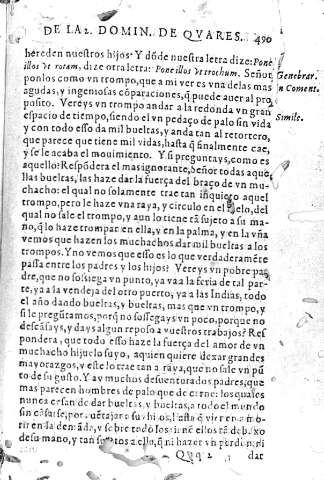 DE LA 2. DOMIN. DE QVARES. 490
hereden nuestros hijos. Y dõde nuestra letra dize: Pone
illos vt rotam, dize otra letra: Pone illos vt trochum. Señor,
Genebrar.
ponlos como vn trompo, que a mi ver es vna delas mas
in Coment.
agudas, y ingeniosas cõparaciones, q̃ puede auer al pro
posito. Vereys vn trompo andar a la redonda vn gran
Simile.
espacio de tiempo, siendo el vn pedaço de palo sin vida
y con todo esso da mil bueltas, y anda tan al retortero,
que parece que tiene mil vidas, hasta q̃ finalmente cae,
y se le acaba el mouimiento. Y si preguntays, como es
aquello? Respõdera el mas ignorante, Señor todas aque
llas bueltas, las haze dar la fuerça del braço de vn mu-
chacho: el qual no solamente trae tan inquieto aquel
trompo, pero le haze vna raya, y circulo en el suelo, del
qual no sale el trompo, y aun lo tiene tã sujeto a su ma-
no, q̃ lo haze trompar en ella, y en la palma, y en la vña
vemos que hazen los muchachos dar mil bueltas a los
trompos. Y no vemos que esso es lo que verdaderamẽte
passa entre los padres y los hijos? Vereys vn pobre pa
dre, que no sossiega vn punto, ya va a la feria de tal par-
te, ya a la vendeja del otro puerto, ya a las Indias, todo
el año dando bueltas, y bueltas, mas que vn trompo, y
si le pregũtamos, porq̃ no sossegays vn poco, porque no
descãsays, y days algun reposo a vuestros trabajos? Res
pondera, que todo esso haze la fuerça del amor de vn
muchacho hijuelo suyo, a quien quiere dexar grandes
mayorazgos, y este lo trae tan a raya, que no sale vn pũ
to de su gusto. Y ay muchos desuenturados padres, que
mas parecen hombres de palo que de carne: los quales
nunca cesan de dar bueltas, y bueltas, a todo el mundo
sin cãsarse, por auentajar a su hijo, hasta q̃ vienen a mo-
rir en la demãda, y sobre todo los tienẽ ellos tã debaxo
de su mano, y tan sujetos a ello, q̃ ni hazer vn
Qqq 2 dar